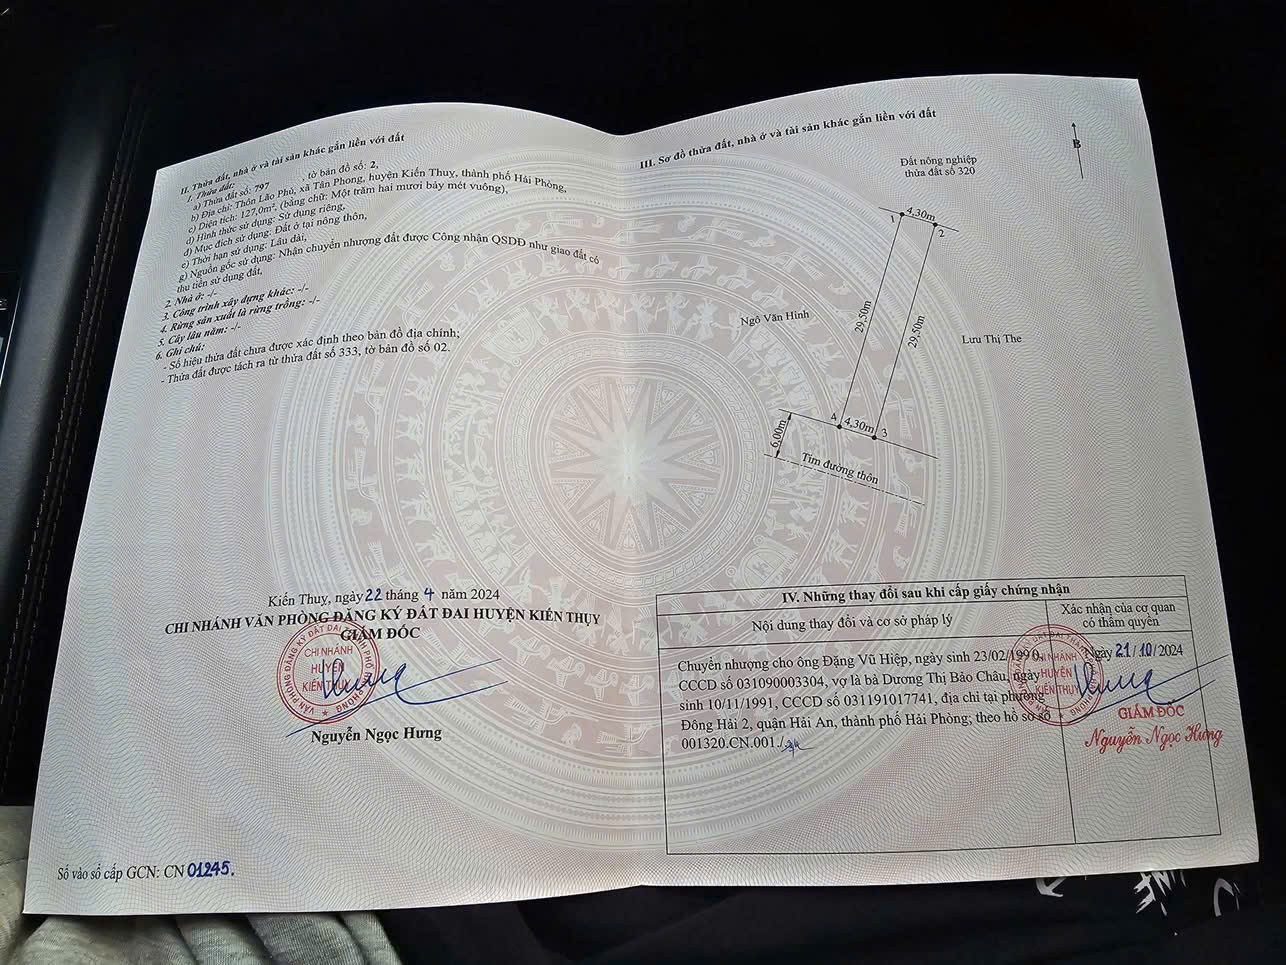 II. Thửa đất, nhà ở và tài sản khác gắn liền với đất
1. Thửa đất:
a) Thửa đất số: 797 , tờ bản đồ số: 2,
b) Địa chỉ: Thôn Lão Phú, xã Tân Phong, huyện Kiến Thuỵ, thành phố Hải Phòng,
c) Diện tích: 127,0m², (bằng chữ: Một trăm hai mươi bảy mét vuông),
d) Hình thức sử dụng: Sử dụng riêng,
đ) Mục đích sử dụng: Đất ở tại nông thôn,
e) Thời hạn sử dụng: Lâu dài,
g) Nguồn gốc sử dụng: Nhận chuyển nhượng đất được Công nhận QSDĐ như giao đất có
thu tiền sử dụng đất,
2. Nhà ở: -/-
3. Công trình xây dựng khác: -/-
4. Rừng sản xuất là rừng trồng: -/-
5. Cây lâu năm: -/-
6. Ghi chú:
- Số hiệu thửa đất chưa được xác định theo bản đồ địa chính;
- Thửa đất được tách ra từ thửa đất số 333, tờ bản đồ số 02.
Kiến Thuỵ, ngày 22 tháng 4 năm 2024
CHI NHÁNH VĂN PHÒNG ĐĂNG KÝ ĐẤT ĐAI HUYỆN KIẾN THỤY
GIÁM ĐỐC
CHI NHÁNH
HUYỆN
KIẾN THỤY
Nguyễn Ngọc Hưng
Số vào sổ cấp GCN: CN 01245.
III. Sơ đồ thửa đất, nhà ở và tài sản khác gắn liền với đất
B
Đất nông nghiệp
thửa đất số 320
1
4,30m
2
29,50m
29,50m
Ngô Văn Hinh
Lưu Thị The
4
4,30m
3
6,00m
Tim đường thôn
IV. Những thay đổi sau khi cấp giấy chứng nhận
Nội dung thay đổi và cơ sở pháp lý
Xác nhận của cơ quan
có thẩm quyền
Chuyển nhượng cho ông Đặng Vũ Hiệp, ngày sinh 23/02/1990,
CCCD số 031090003304, vợ là bà Dương Thị Bảo Châu, ngày
sinh 10/11/1991, CCCD số 031191017741, địa chỉ tại phường
Đông Hải 2, quận Hải An, thành phố Hải Phòng, theo hồ sơ số
001320.CN.001./.
Ngày 21/10/2024
CHI NHÁNH
HUYỆN
KIẾN THỤY
GIÁM ĐỐC
Nguyễn Ngọc Hưng